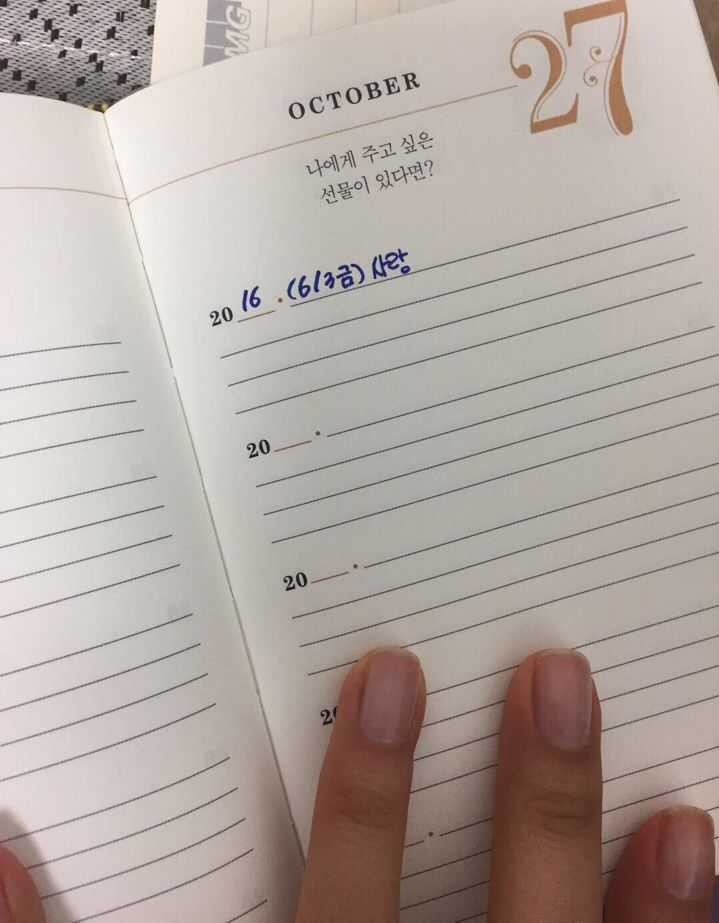 MG
OCTOBER
27
나에게 주고 싶은
선물이 있다면?
20 16 . (6/3금) 사랑
20
20